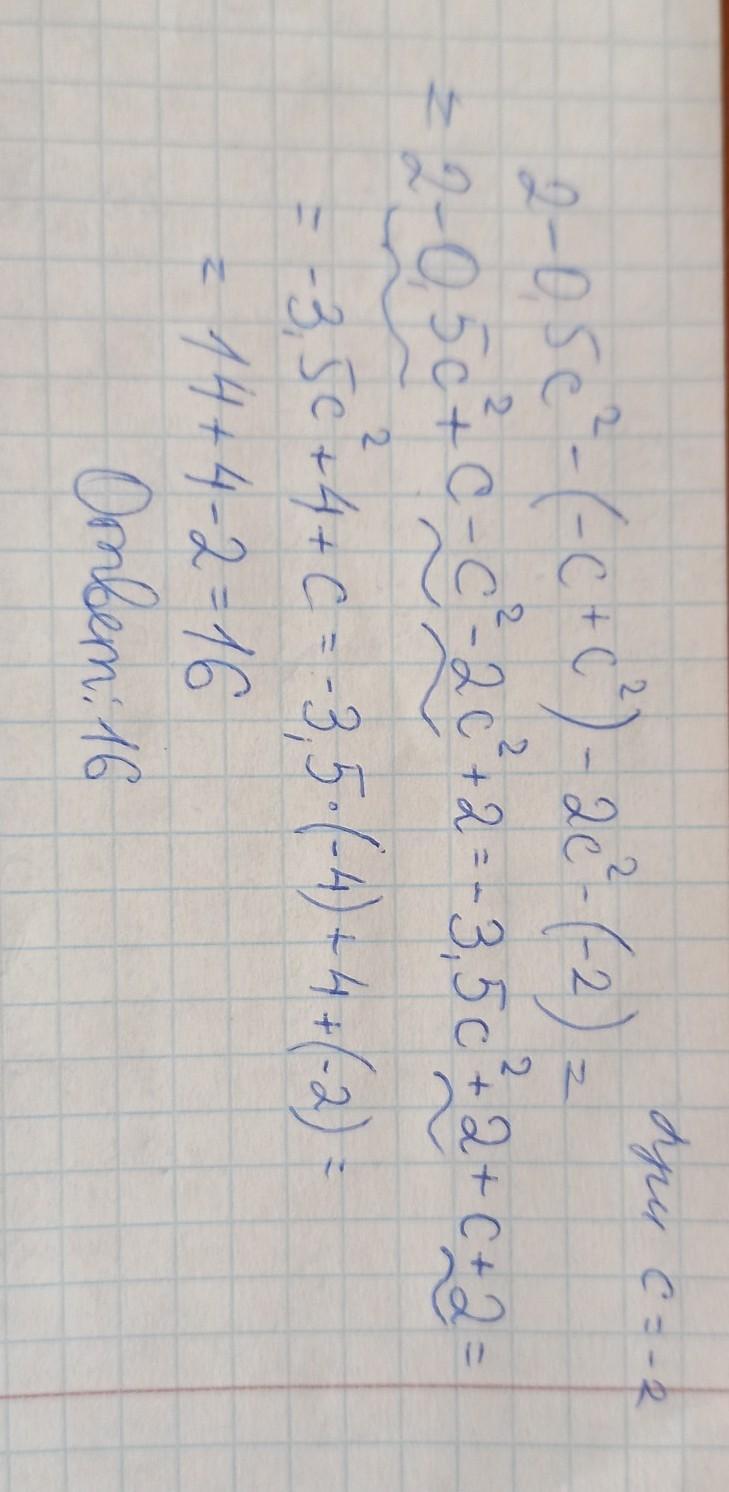 при c = -2
2 - 0,5c² - (-c + c²) - 2c² - (-2) =
= 2 - 0,5c² + c - c² - 2c² + 2 = -3,5c² + 2 + c + 2 =
= -3,5c² + 4 + c = -3,5 · (-4) + 4 + (-2) =
= 14 + 4 - 2 = 16
Ответ: 16